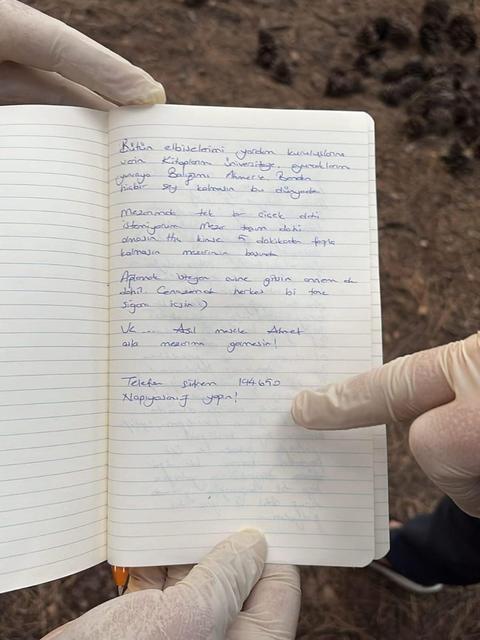 Bütün elbiselerimi yardım kuruluşlarına
verin Kitaplarımı üniversiteye, oyuncaklarım
yuvaya Balığımı Ahmet'e. Benden
hiçbir şey kalmasın bu dünyada
Mezarımda tek bir çiçek dahi
istemiyorum Mezar taşım dahi
olmasın Hiç kimse 5 dakikadan fazla
kalmasın mezarımın başında
Ağlamak isteyen evine gitsin annem de
dahil Cenazemde herkes bi tane
sigara içsin :)
Ve ... Asıl mesele Ahmet
asla mezarıma gelmesin!
Telefon şifrem 194650
Napıyosanız yapın!